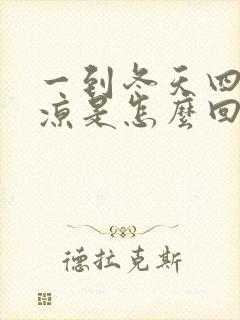 一到冬天四
凉是怎麼回
德拉克斯